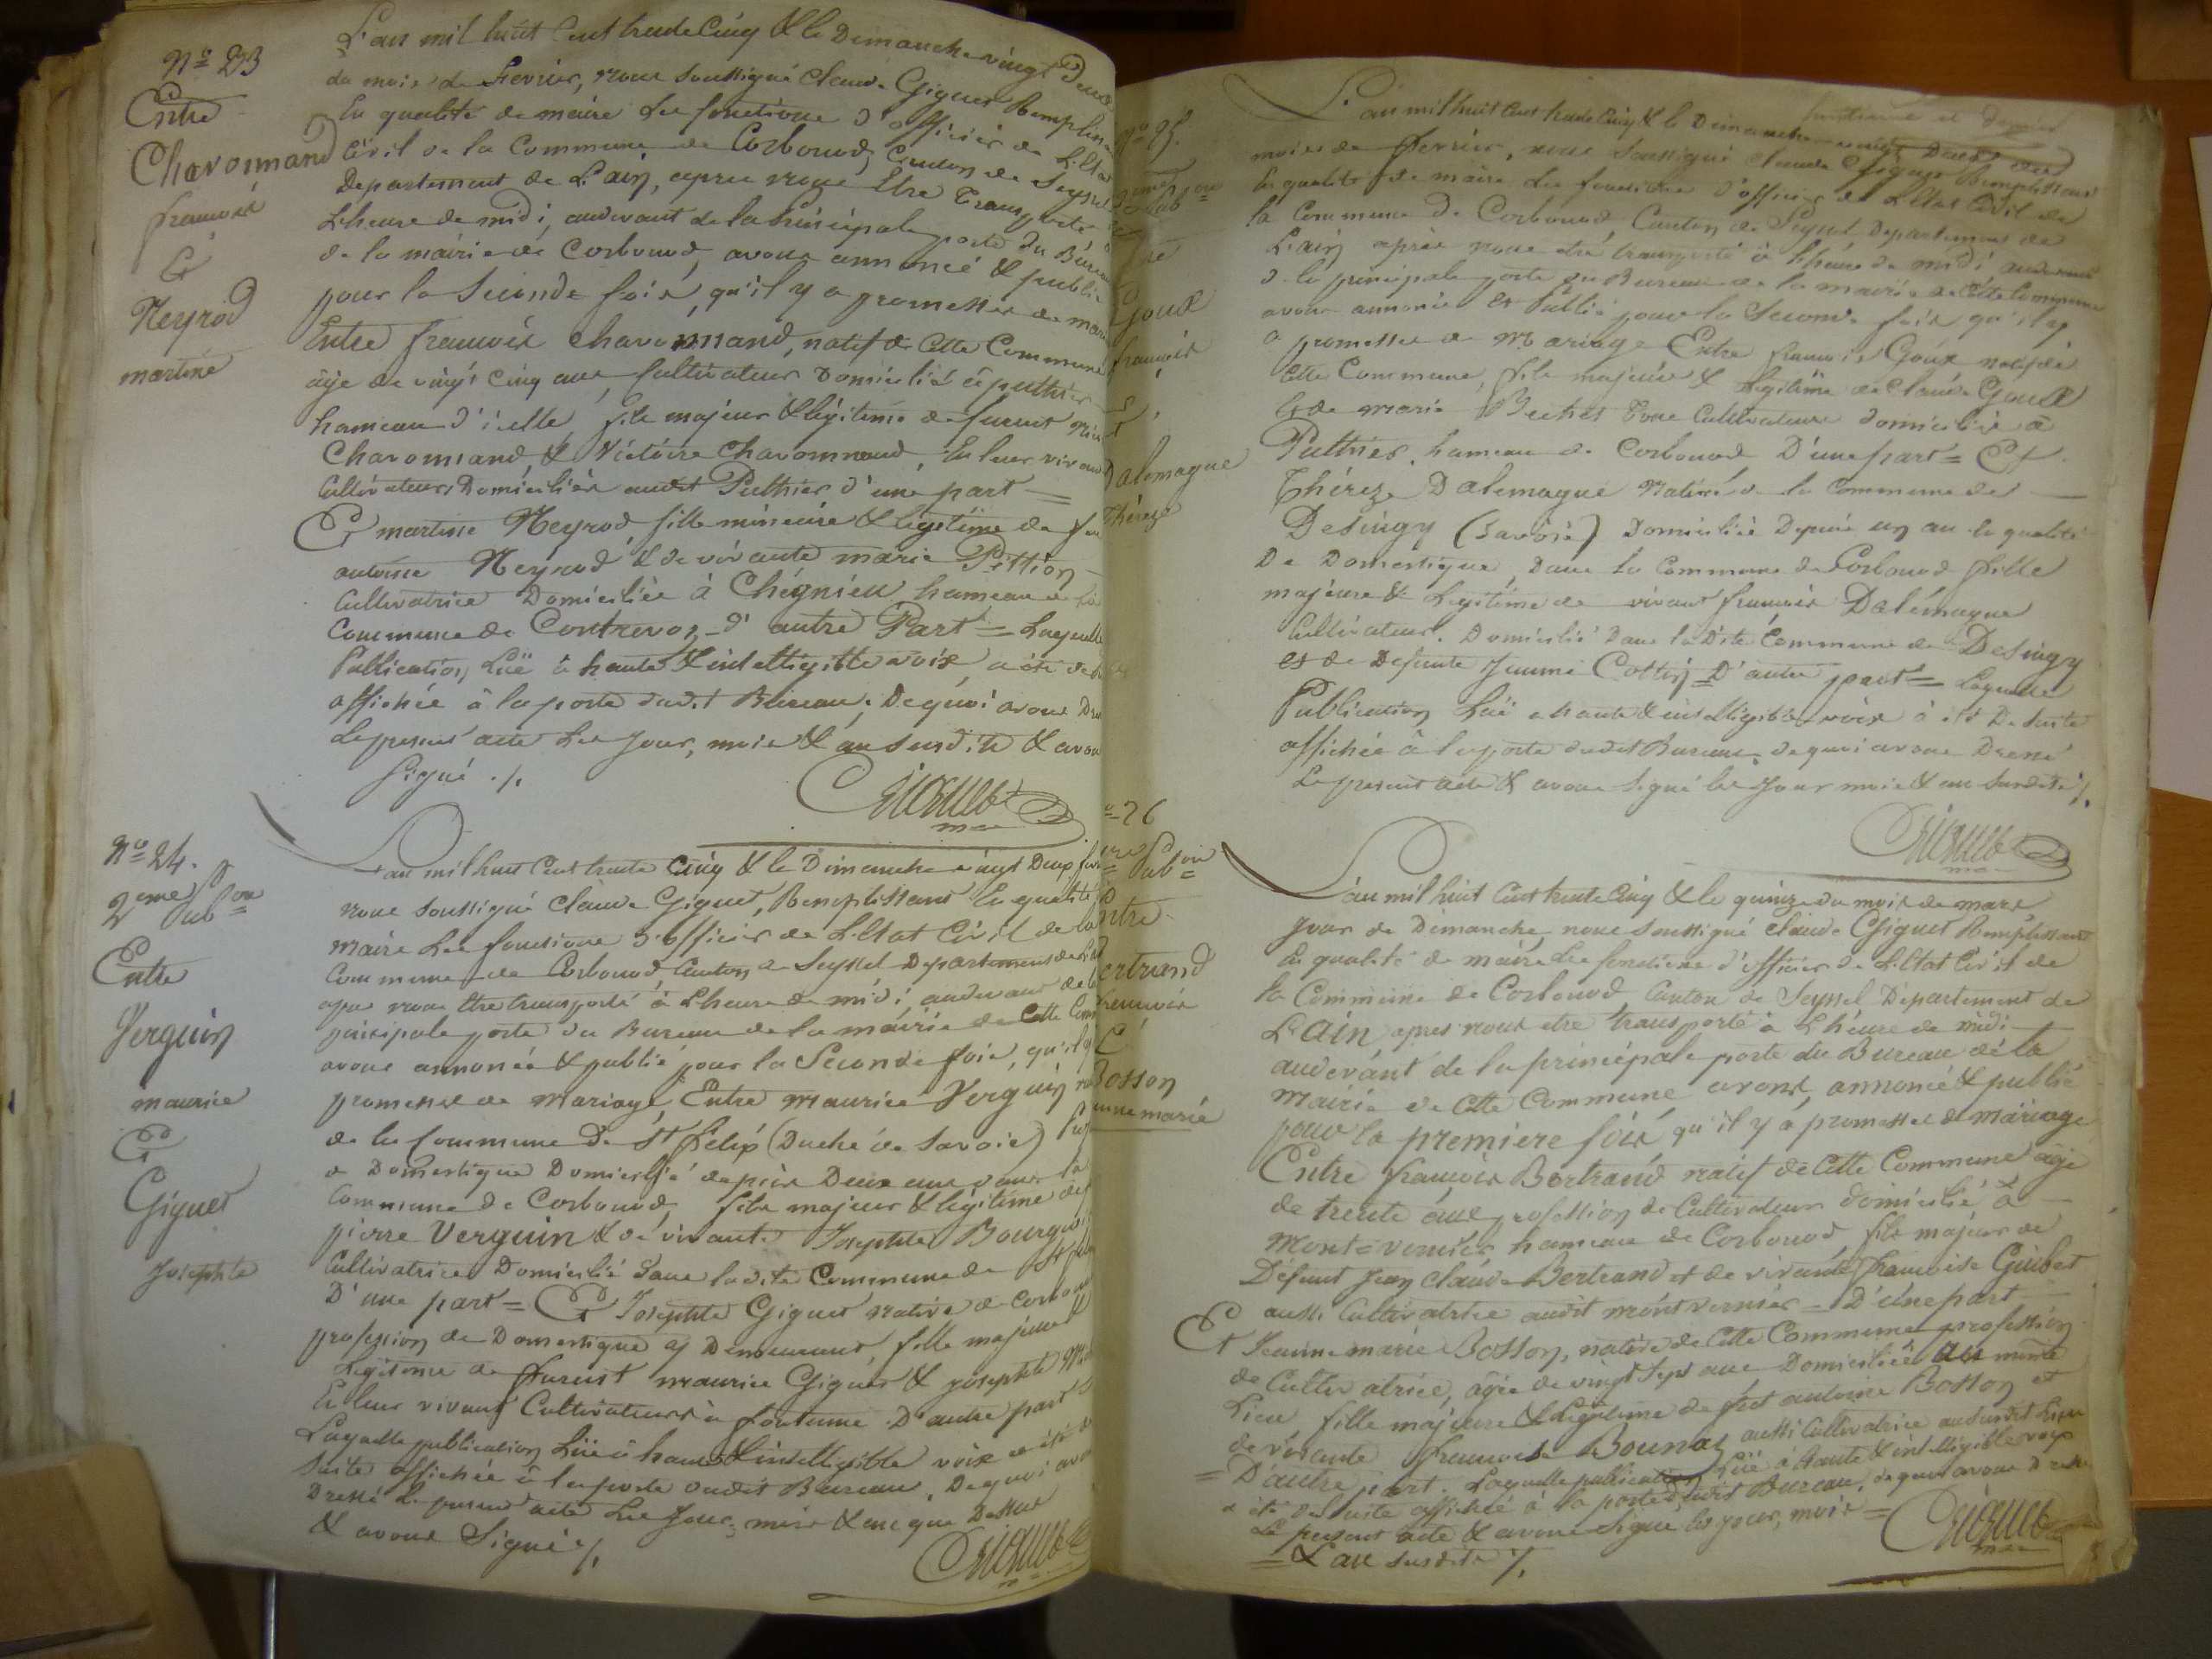 N° 23
Entre
Charonnand
françois
Et
Neyrod
martine
L'an mil huit Cent trente Cinq & le Dimanche vingt Deux
du mois de Fevrier, nous soussigné Claude Giguet Remplissa
En qualité de maire Les fonctions d'officier de L'Etat
Civil de la Commune de Corbonod, Canton de Seyssel
Departement de L'ain, après nous Etre Transporté à
L'heure de midi, audevant de la Principale porte du Bureau
de la mairie de Corbonod, avons annoncé & publié
pour la Seconde fois, qu'il y a promesses de mari
Entre françois Charonnand, natif de Cette Commune
âgé de vingt Cinq ans, Cultivateur Domicilié à puthier
hameau d'icelle, fils majeur & légitime de furent
Charonnand, & Victoire Charonnaud, En leur vivant
Cultivateurs Domiciliés audit Puthier d'une part =
Et martine Neyrod fille mineure & legitime de feu
antoine Neyrod & de vivante marie Pittion
Cultivatrice Domiciliée à Chégnieu, hameau de la
Commune de Contrevoz, d'autre Part = Laquelle
Publication, Luë à haute & intelligible voix, a été de
affichée à la porte dudit Bureau, De quoi avons Dre
Le present acte Les Jour, mois & an susdits & avons
Signé ./.
Giguet
N° 24.
2eme Pubon
Entre
Verguin
maurice
Et
Giguet
Josephte
L'an mil huit Cent trente Cinq & le Dimanche vingt Deux fevr
nous soussigné Claude Giguet, Remplissant En qualité
maire Les fonctions d'officier de L'Etat Civil de la
Commune de Corbonod, Canton de Seyssel Departement de L'
apres nous Etre transporté à L'heure de midi, audevant de la
principale porte du Bureau de la mairie de Cette Com
avons annoncé & publié pour la Seconde fois, qu'il y
promesse de mariage, Entre maurice Verguin na
de la Commune de St Félix (Duché de Savoie)
de Domestique Domicilié depuis Deux ans dans la
Commune de Corbonod, fils majeur & légitime de
pierre Verguin & de vivante Josephte Bourg
Cultivatrice Domicilié Dans ladite Commune de St
D'une part = Et Josephte Giguet native de Corbonod
profession de Domestique y Demeurant, fille majeure &
Legitime de furent maurice Giguet & josephte
En leur vivant Cultivateurs à D'autre part
Laquelle publication Luë à haute & intelligible voix a été de
suite affichée à la porte dudit Bureau, De quoi avons
Dressé Le present acte Les Jour, mois & an que Dessus
& avons Signé ./.
Giguet
N° 25.
Pubon
Entre
Goux
françois
Et
Dalemagne
Thérèze
L'an mil huit Cent trente Cinq & le Dimanche vingt Deux du
mois de fevrier, nous soussigné Claude Giguet Remplissant
En qualité de maire Les fonctions d'officier de L'Etat Civil de
la Commune de Corbonod, Canton de Seyssel Departement de
L'ain après nous etre transporté à L'heure de midi, audevant
de la principale porte du Bureau de la mairie de Cette Commune
avons annoncé Et Publié pour la Seconde fois qu'il y
a promesses de Mariage Entre françois Goux natif de
Cette Commune, fils majeur & legitime de Claude Goux
Et de marie Bichet Tous Cultivateurs domiciliés à
Puthier, hameau de Corbonod D'une part = Et
Thérèze Dalemagne Native de la Commune de
Desingy (Savoie) Domiciliée Depuis un an En qualité
De Domestique, Dans la Commune de Corbonod fille
majeure & Legitime de vivant françois Dalémagne
Cultivateur, Domicilié Dans la Dite Commune de Desingy
et de Defunte Jeanne Cottin = D'autre part = Laquelle
Publication Luë a haute & intelligible voix à été De Suite
affichée à la porte dudit Bureau, de quoi avons Dressé
Le present acte & avons signé les Jour mois & an susdits ./.
Giguet
N° 26
1ere Pubon
Entre
Bertrand
françois
Et
Bosson
Jeanne marie
L'an mil huit Cent trente Cinq & le quinze du mois de mars
Jour de Dimanche nous soussigné Claude Giguet Remplissant
En qualité de maire Les fonctions d'officier de L'Etat Civil de
la Commune de Corbonod, Canton de Seyssel Departement de
L'Ain apres nous etre transporté à L'heure de midi
audevant de la principale porte du Bureau de la
mairie de Cette Commune avons annoncé & publié
pour la premiere fois qu'il y a promesses de mariage
Entre françois Bertrand natif de Cette Commune âgé
de trente ans profession de Cultivateur domicilié à
Mont=vernier hameau de Corbonod fils majeur de
Défunt Jean Claude Bertrand et de vivante françoise Guibet
aussi Cultivatrice audit montvernier = D'une part
Et Jeanne marie Bosson, native de Cette Commune profession
de Cultivatrice, âgée de vingt sept ans Domiciliée au même
Lieu fille majeure & Légitime de feu antoine Bosson et
de vivante françoise Bounaz aussi Cultivatrice audit Lieu
= D'autre part. Laquelle publication Luë à haute & intelligible voix
a été de suite affichée à la porte dudit Bureau, de quoi avons Dressé
Le present acte & avons signé les jour, mois =
= & an susdits ./.
Giguet